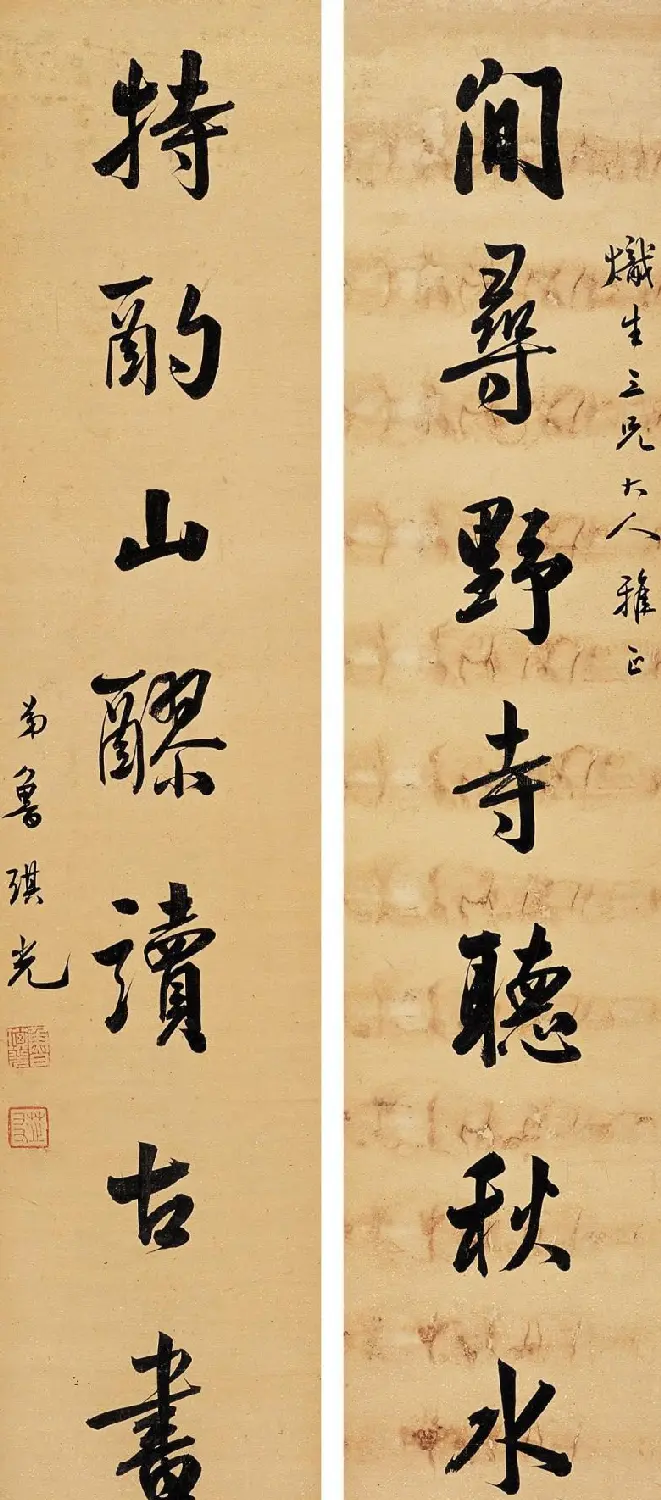 閒尋野寺聽秋水
熾生三兄大人雅正
特酌山醪讀古書
弟魯琪光